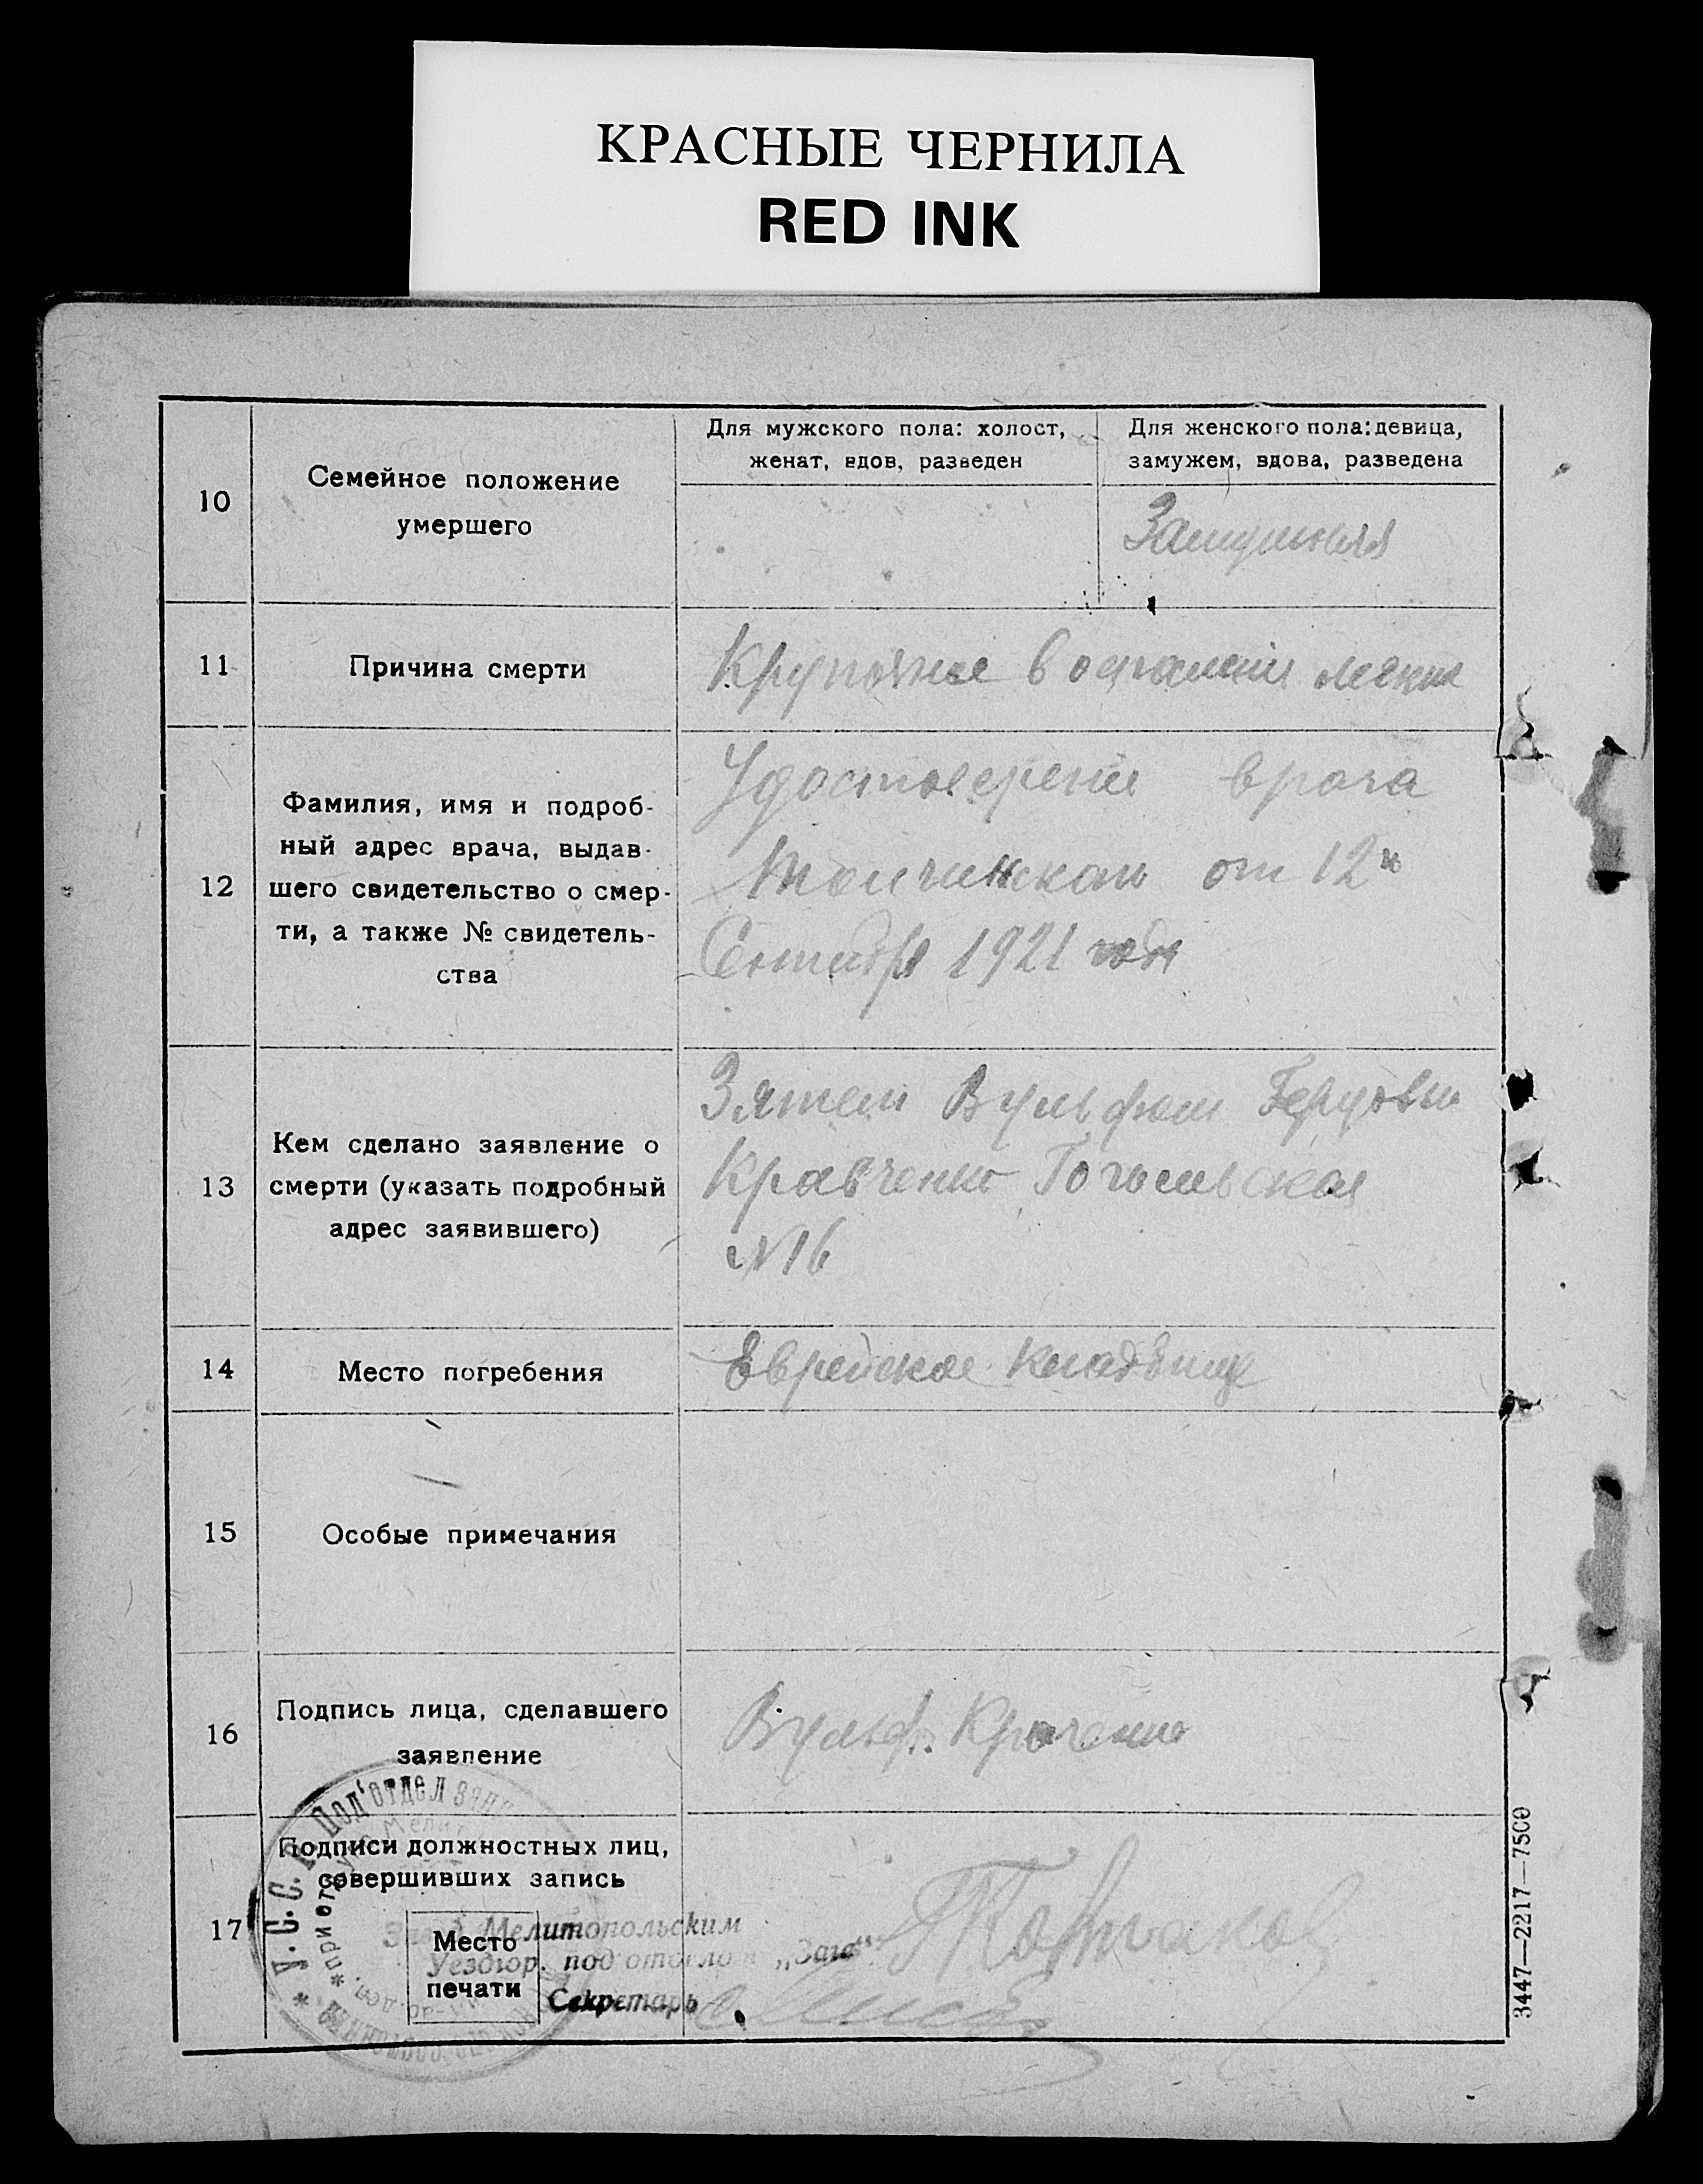 КРАСНЫЕ ЧЕРНИЛА
RED INK
10
Семейное положение
умершего
Для мужского пола: холост,
женат, вдов, разведен
Для женского пола: девица,
замужем, вдова, разведена
Замужняя
11
Причина смерти
Крупозное воспаление легких
12
Фамилия, имя и подроб-
ный адрес врача, выдав-
шего свидетельство о смер-
ти, а также № свидетель-
ства
Удостоверение врача
от 12го
Сентября 1921 года
13
Кем сделано заявление о
смерти (указать подробный
адрес заявившего)
Зятем Вульфом Герцовым
Кравченко Гогольская
№ 16
14
Место погребения
Еврейское кладбище
15
Особые примечания
16
Подпись лица, сделавшего
заявление
Вульф
17
Подписи должностных лиц,
совершивших запись
Место
печати
Зав. Мелитопольским
Уездгор. под'отделом „Загс"
Секретарь
У.С.С.Р. Под'отдел
3447—2217—7500